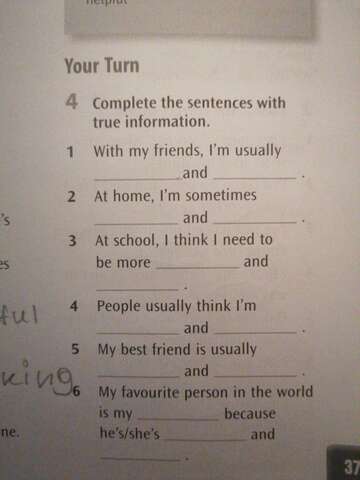 helpful
Your Turn
4 Complete the sentences with
true information.
1 With my friends, I'm usually
____________ and ____________ .
2 At home, I'm sometimes
____________ and ____________ .
's
3 At school, I think I need to
es
be more ____________ and
____________ .
4 People usually think I'm
ful
____________ and ____________ .
5 My best friend is usually
king
____________ and ____________ .
6 My favourite person in the world
is my ____________ because
ne.
he's/she's ____________ and
____________ .
37